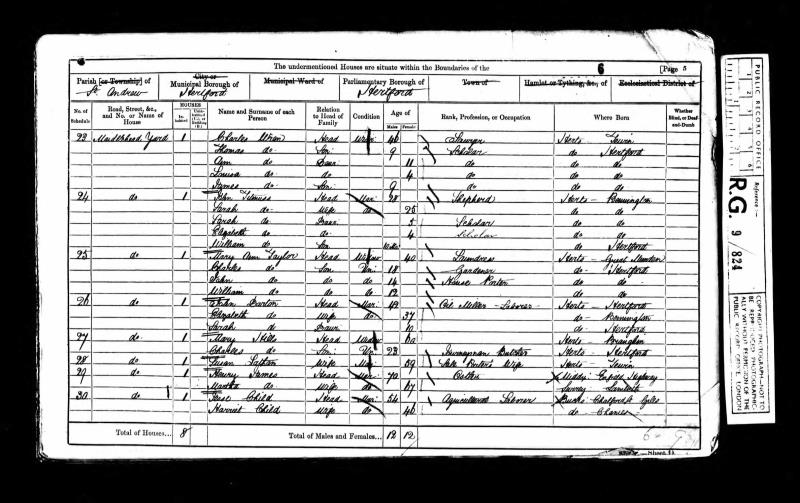 The undermentioned Houses are situate within the Boundaries of the
6 [Page 5
Parish [or Township] of City or Municipal Borough of Municipal Ward of Parliamentary Borough of Town of Hamlet or Tything, &c., of Ecclesiastical District of
St. Andrew Hertford Hertford
No. of Schedule Road, Street, &c., and No. or Name of House HOUSES Inhabited Uninhabited (U.), or Building (B.) Name and Surname of each Person Relation to Head of Family Condition Age of Males Females Rank, Profession, or Occupation Where Born Whether Blind, or Deaf-and-Dumb
23 Yard 1 Charles Head 46 Sawyer Herts Tewin
Thomas do Son 9 Scholar do Hertford
Ann do Daur 11 do do
Louisa do do 4 do do
James do Son 9 do do
24 do 1 John Head Mar 28 Shepherd Herts Bennington
Sarah do Wife do 25 do do
Sarah do Daur 5 Scholar do do
Elizabeth do do 4 Scholar do do
William do Son do Hertford
25 do 1 Mary Ann Taylor Head 40 Laundress Herts
Charles do Son Un 18 Gardener do Hertford
John do do 14 House Porter do do
William do do 12 do do
26 do 1 Barton Head Mar 49 Oil Miller Labourer Herts Hertford
Elizabeth do Wife do 37 do Bennington
Sarah do Daur do Hertford
27 do 1 Mary Hills Head Herts
Charles do Son Un 23 Journeyman Butcher Herts Hertford
28 do 1 Susan Wife Mar 39 Wife Herts Tewin
29 do 1 Henry James Head Mar 70
Martha do Wife do 67 Surrey Lambeth
30 do 1 Child Head Mar 54 Agricultural Labourer Bucks Chalfont St Giles
Harriet Child Wife do 46 do
Total of Houses... 8 Total of Males and Females... 12 12
Sheet D.
PUBLIC RECORD OFFICE
R.G. 9/824
COPYRIGHT PHOTOGRAPH—NOT TO
BE REPRODUCED PHOTOGRAPHIC-
ALLY WITHOUT PERMISSION OF THE
PUBLIC RECORD OFFICE, LONDON